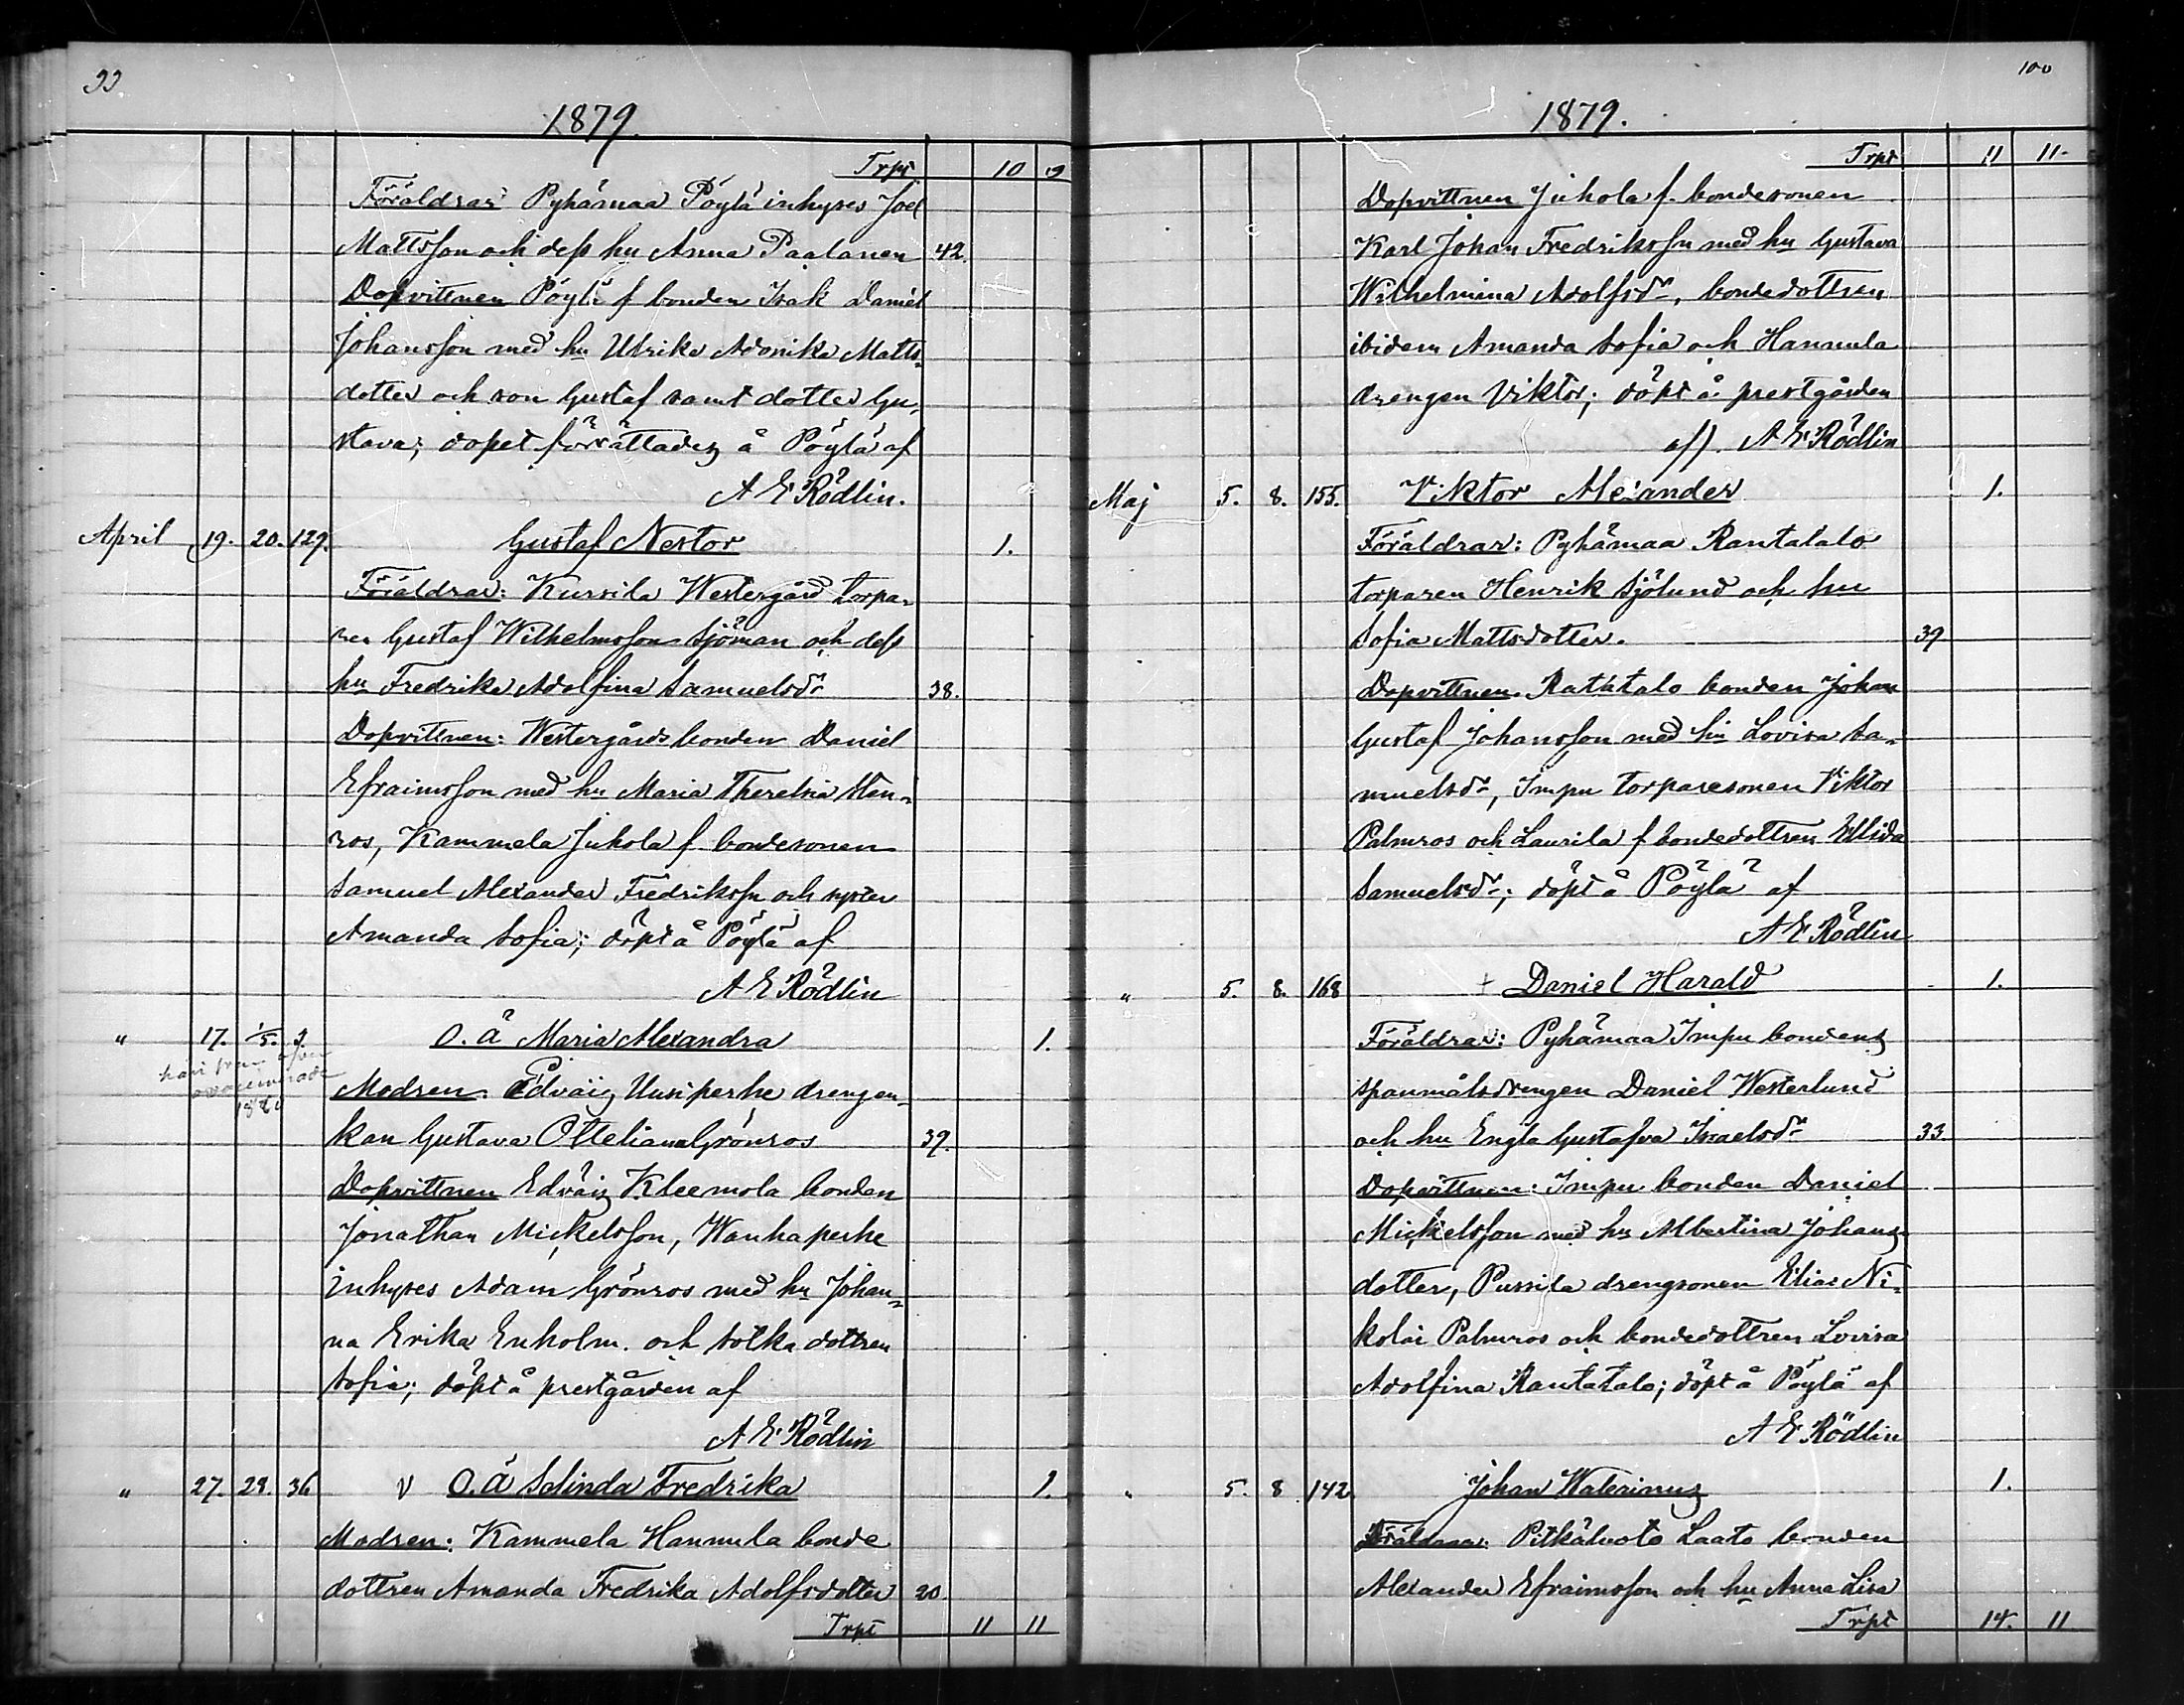 99
1879.
Trpt 10 9
Föräldrar Pyhämaa Pöylä inhyses Joel
Mattsson och dess hu Anna Paalanen 42.
Dopvittnen Pöylä f bonden Isak Daniel
Johansson med hu Ulrika Adonika Matts-
dotter och son Gustaf samt dotter Gu-
stava; dopet förrättades å Pöylä af
A E Rödlin.
April 19. 20. 129. Gustaf Nestor 1.
Föräldrar: Kursila Westergård torpa-
ren Gustaf Wilhelmsson Sjöman och dess
hu Fredrika Adolfina Samuelsdr 38.
Dopvittnen: Westergårds bonden Daniel
Efraimsson med hu Maria Theresia Sten-
ros, Kammela Juhola f. bondesonen
Samuel Alexander Fredriksson och syster
Amanda Sofia; döpt å Pöylä af
A E Rödlin
" 17. 1/5. 3. O.ä Maria Alexandra 1.
Modren: Edväis Uusiperhe drengen-
kan Gustava Otteliana Grönros 39.
Dopvittnen Edväis Kleemola bonden
Jonathan Mickelsson, Wanhaperhe
inhyses Adam Grönros med hu Johan-
na Erika Enholm. och Solka dottren
Sofia; döpt å prestgården af
A E Rödlin
" 27. 29. 36 v O.ä Selinda Fredrika 1.
Modren: Kammela Hannula bonde
dottren Amanda Fredrika Adolfsdotter 20.
Trpt 11 11
100
1879.
Trpt 11 11
Dopvittnen Juhola f. bondesonen
Karl Johan Fredriksson med hu Gustava
Wilhelmina Adolfsdr, bondedottren
ibidem Amanda Sofia och Hannula
drengen Viktor; döpt å prestgården
af A E Rödlin
Maj 5. 8. 155. Viktor Alexander 1.
Föräldrar: Pyhämaa Rantatalo
torparen Henrik Sjölund och hu
Sofia Mattsdotter. 39
Dopvittnen. Rattatalo bonden Johan
Gustaf Johansson med hu Lovisa Sa-
muelsdr, Impu torparesonen Viktor
Palmros och Laurila f bondedottren Elida
Samuelsdr; döpt å Pöylä af
A E Rödlin
" 5. 8. 168 + Daniel Harald 1.
Föräldrar: Pyhämaa Impu bondens
spanmålsdrengen Daniel Westerlund
och hu Engla Gustafva Isaelsdr 33.
Dopvittnen: Impu bonden Daniel
Mickelsson med hu Albertina Johans
dotter, Pussila drengsonen Elias Ni-
kolai Palmros och bondedottren Lovisa
Adolfina Rantatalo; döpt å Pöylä af
A E Rödlin
" 5. 8. 142. Johan Walerinus 1.
Föräldrar: Pitkäluoto Laato bonden
Alexander Efraimsson och hu Anna Lisa
Trpt 14. 11